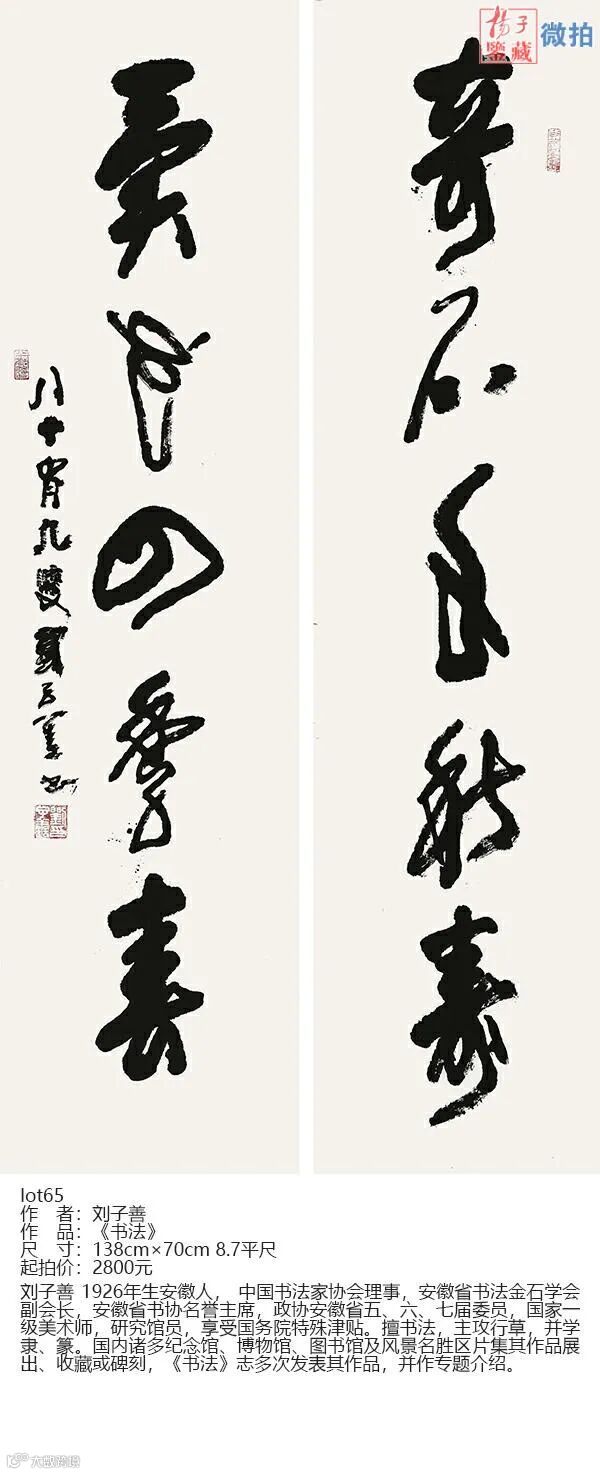 扬子
鑒藏 微拍
奇石千秋寿
異花四季春
八十有九叟劉子善书
lot65
作 者：刘子善
作 品：《书法》
尺 寸：138cm×70cm 8.7平尺
起拍价：2800元
刘子善 1926年生安徽人， 中国书法家协会理事，安徽省书法金石学会
副会长，安徽省书协名誉主席，政协安徽省五、六、七届委员，国家一
级美术师，研究馆员，享受国务院特殊津贴。擅书法，主攻行草，并学
隶、篆。国内诸多纪念馆、博物馆、图书馆及风景名胜区片集其作品展
出、收藏或碑刻，《书法》志多次发表其作品，并作专题介绍。
大数跨境